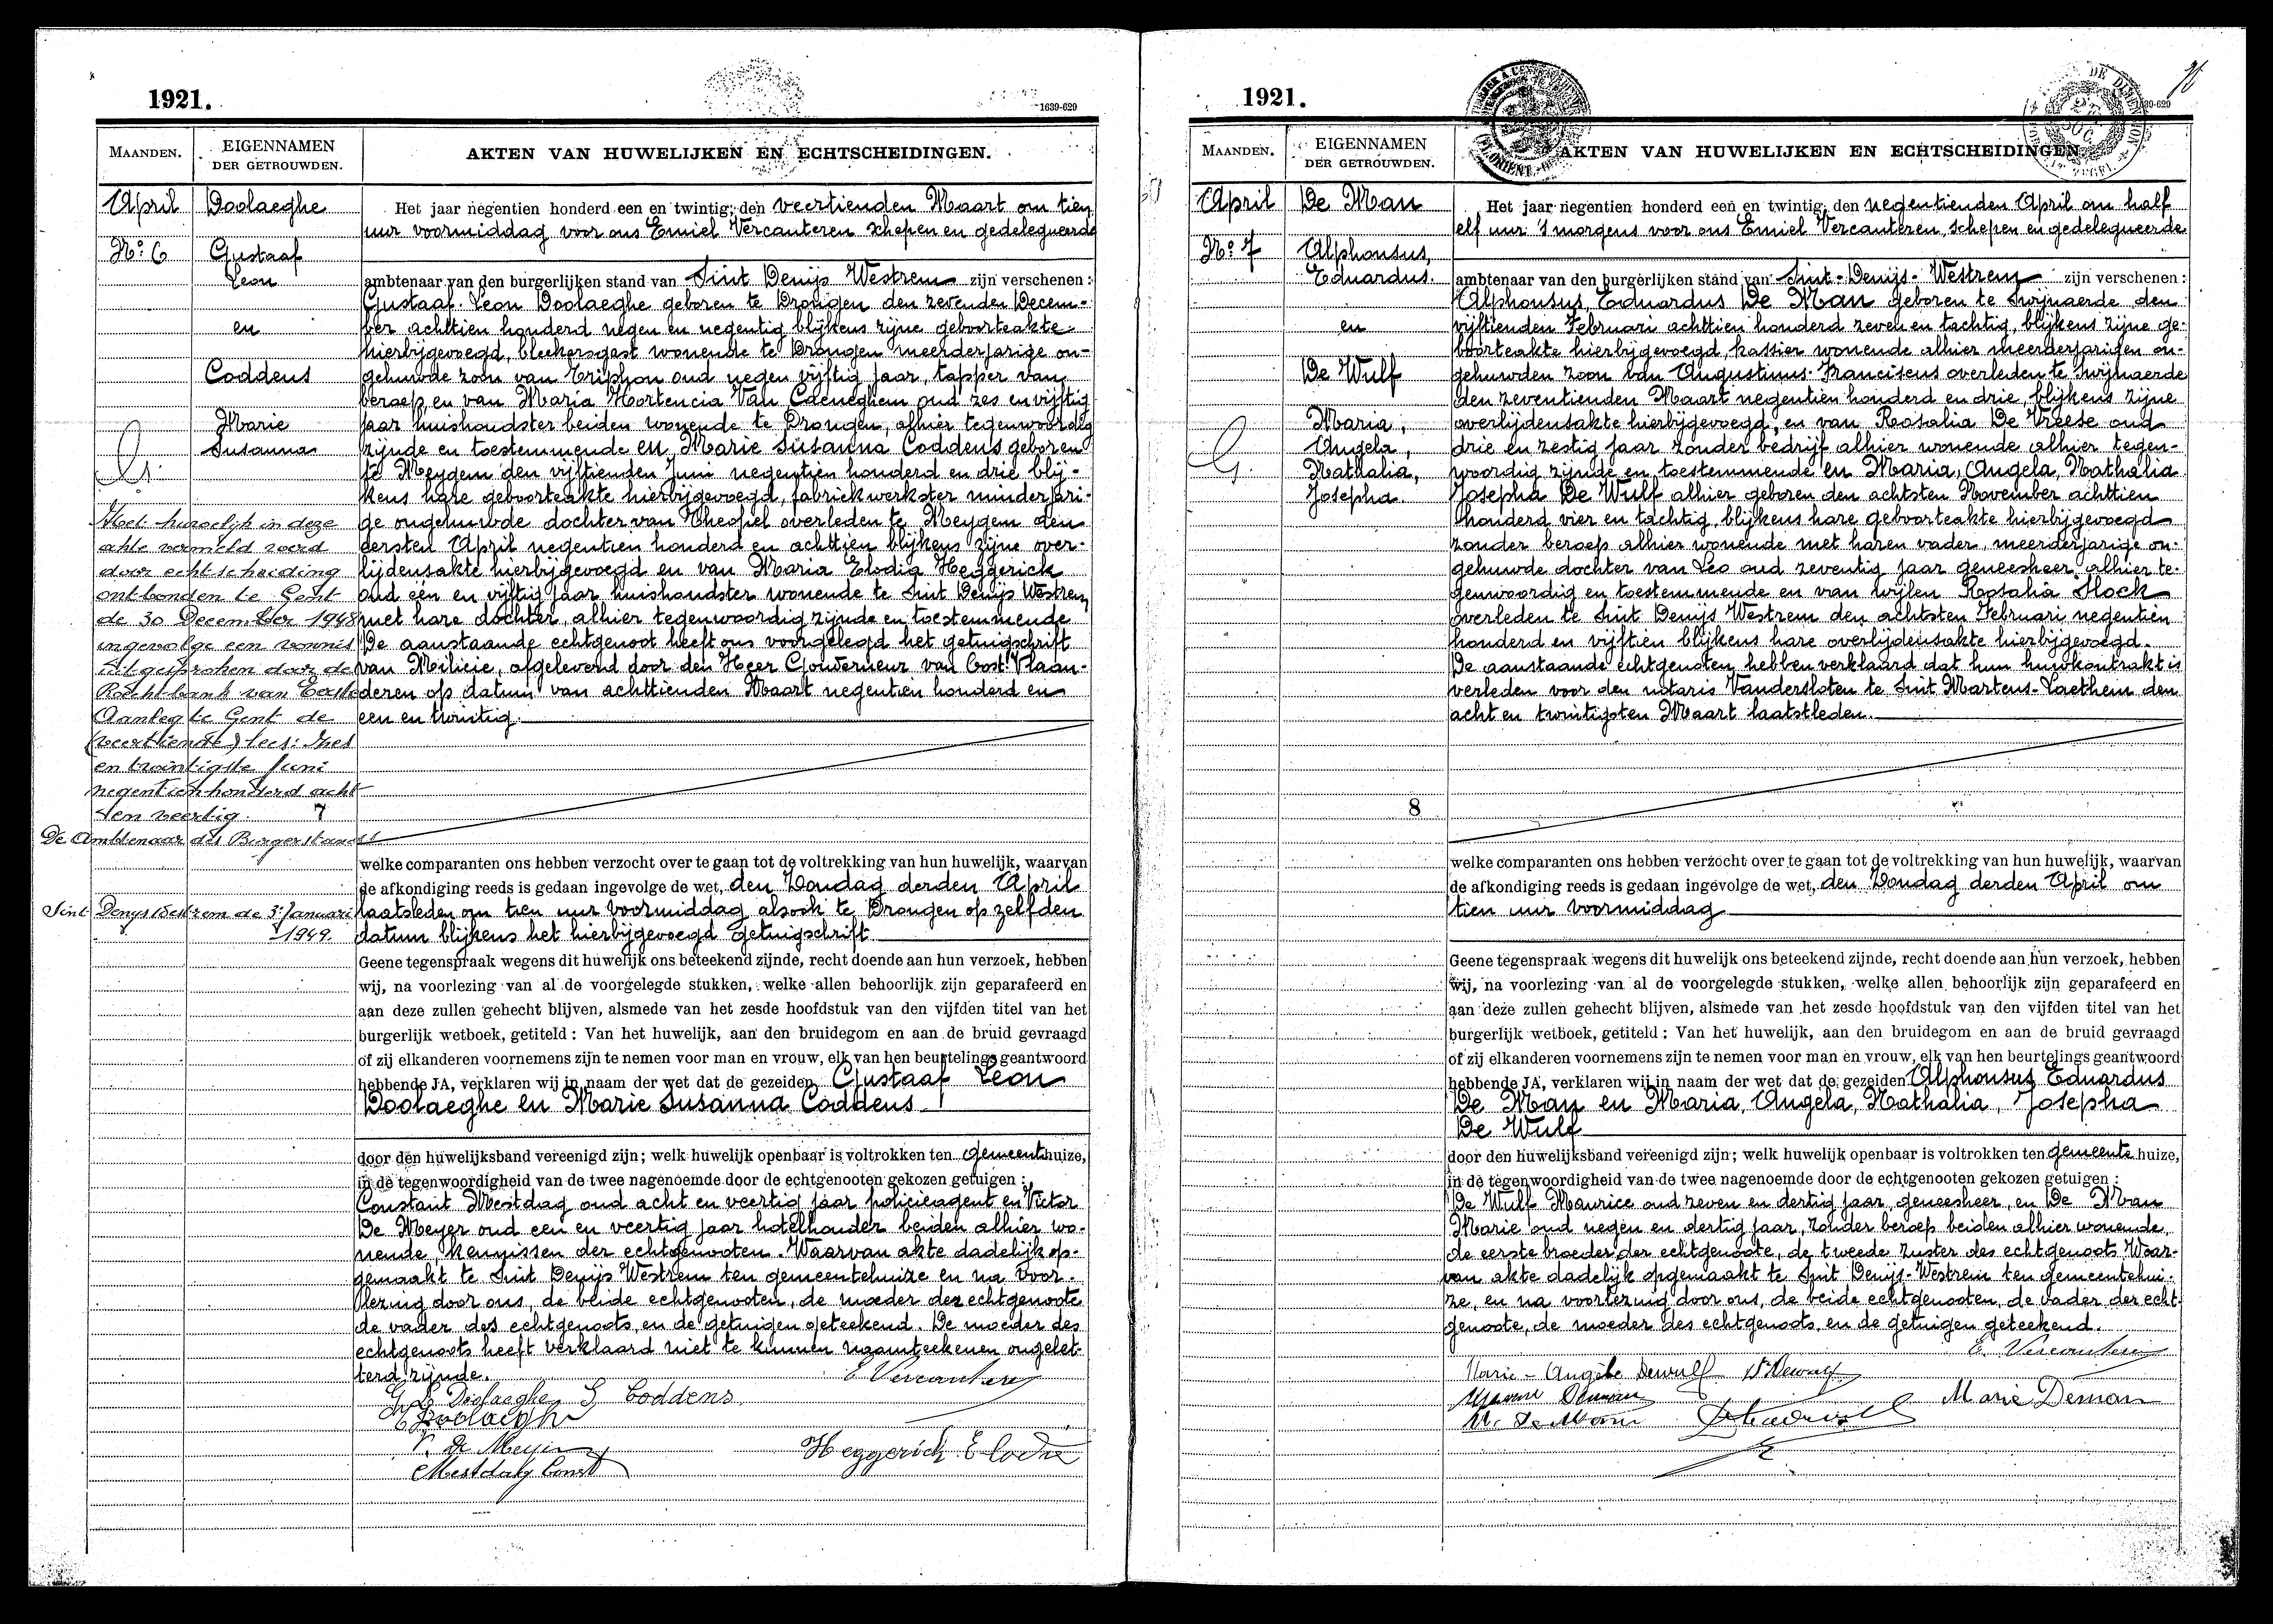 1921.
1639-629
MAANDEN.
EIGENNAMEN
DER GETROUWDEN.
AKTEN VAN HUWELIJKEN EN ECHTSCHEIDINGEN.
April
Doolaeghe
No: 6
Gustaaf
Leon
en
Coddens
Marie
Susanna
Het huwelijk in deze
akte vermeld werd
door echtscheiding
ontbonden te Gent
de 30 December 1948
ingevolge een vonnis
uitgesproken door de
Rechtbank van Eerste
Aanleg te Gent de
(veertiende) lees: zes
en twintigste Juni
negentienhonderd acht
en veertig. 7
De Ambtenaar des Burgerstands
Sint Denys Westrem de 3 Januari
1949.
Het jaar negentien honderd een en twintig, den veertienden Maart om tien
uur voormiddag voor ons Emiel Vercauteren schepen en gedelegueerde
ambtenaar van den burgerlijken stand van Sint Denijs Westrem zijn verschenen:
Gustaaf Leon Doolaeghe geboren te Drongen den zevenden Decem-
ber achttien honderd negen en negentig blijkens zijne geboorteakte
hierbijgevoegd, bleekersgast wonende te Drongen meerderjarige on-
gehuwde zoon van Triphon oud negen vijftig jaar, tapper van
beroep, en van Maria Hortencia Van Caeneghem oud zes en vijftig
jaar huishoudster beiden wonende te Drongen, alhier tegenwoordig
zijnde en toestemmende en Marie Susanna Coddens geboren
te Meygem den vijftienden Juni negentien honderd en drie blij-
kens hare geboorteakte hierbijgevoegd, fabriekwerkster minderjari-
ge ongehuwde dochter van Theofiel overleden te Meygem den
eersten April negentien honderd en achttien blijkens zijne over-
lijdensakte hierbijgevoegd en van Maria Elodia Heggerick
oud een en vijftig jaar huishoudster wonende te Sint Denijs Westrem
met hare dochter, alhier tegenwoordig zijnde en toestemmende
De aanstaande echtgenoot heeft ons voorgelegd het getuigschrift
van Milicie, afgeleverd door den Heer Gouverneur van Oost Vlaan-
deren op datum van achttienden Maart negentien honderd en
een en twintig.
welke comparanten ons hebben verzocht over te gaan tot de voltrekking van hun huwelijk, waarvan
de afkondiging reeds is gedaan ingevolge de wet, den Zondag derden April
laatsleden om tien uur voormiddag alsook te Drongen op zelfden
datum blijkens het hierbijgevoegd getuigschrift
Geene tegenspraak wegens dit huwelijk ons beteekend zijnde, recht doende aan hun verzoek, hebben
wij, na voorlezing van al de voorgelegde stukken, welke allen behoorlijk zijn geparafeerd en
aan deze zullen gehecht blijven, alsmede van het zesde hoofdstuk van den vijfden titel van het
burgerlijk wetboek, getiteld : Van het huwelijk, aan den bruidegom en aan de bruid gevraagd
of zij elkanderen voornemens zijn te nemen voor man en vrouw, elk van hen beurtelings geantwoord
hebbende JA, verklaren wij in naam der wet dat de gezeiden Gustaaf Leon
Doolaeghe en Marie Susanna Coddens
door den huwelijksband vereenigd zijn; welk huwelijk openbaar is voltrokken ten gemeentehuize,
in de tegenwoordigheid van de twee nagenoemde door de echtgenooten gekozen getuigen :
Constant Mestdag oud acht en veertig jaar policieagent en Victor
De Meyer oud een en veertig jaar hotelhouder beiden alhier wo-
nende, kennissen der echtgenooten. Waarvan akte dadelijk op-
gemaakt te Sint Denijs Westrem ten gemeentehuize en na voor-
lezing door ons, de beide echtgenooten, de moeder der echtgenoote
de vader des echtgenoots, en de getuigen geteekend. De moeder des
echtgenoots heeft verklaard niet te kunnen naamteekenen ongelet-
terd zijnde.
E Vercauteren
G L Doolaeghe S Coddens
Doolaeghe
V. De Meyer
Heggerick Elodie
Mestdag Const
1921.
1639-629
MAANDEN.
EIGENNAMEN
DER GETROUWDEN.
AKTEN VAN HUWELIJKEN EN ECHTSCHEIDINGEN.
April
De Man
No: 7
Alphonsus,
Eduardus.
en
De Wulf
Maria,
Angela,
Nathalia,
Josepha.
8
Het jaar negentien honderd een en twintig, den negentienden April om half
elf uur 's morgens voor ons Emiel Vercauteren, schepen en gedelegueerde
ambtenaar van den burgerlijken stand van Sint-Denijs-Westrem zijn verschenen :
Alphonsus, Eduardus De Man geboren te Swijnaerde den
vijftienden Februari achttien honderd zeven en tachtig, blijkens zijne ge-
boorteakte hierbijgevoegd, kassier wonende alhier meerderjarigen on-
gehuwden zoon van Augustinus-Franciscus overleden te Swijnaerde
den zeventienden Maart negentien honderd en drie, blijkens zijne
overlijdensakte hierbijgevoegd, en van Rosalia De Vreese oud
drie en zestig jaar zonder bedrijf alhier wonende alhier tegen-
woordig zijnde en toestemmende en Maria, Angela, Nathalia
Josepha De Wulf alhier geboren den achtsten November achttien
honderd vier en tachtig, blijkens hare geboorteakte hierbijgevoegd
zonder beroep alhier wonende met haren vader, meerderjarige on-
gehuwde dochter van Leo oud zeventig jaar geneesheer, alhier te-
genwoordig en toestemmende en van wijlen Rosalia Stock
overleden te Sint Denijs Westrem den achtsten Februari negentien
honderd en vijftien blijkens hare overlijdensakte hierbijgevoegd.
De aanstaande echtgenoten hebben verklaard dat hun huwkontrakt is
verleden voor den notaris Vandersloten te Sint Martens-Laethem den
acht en twintigsten Maart laatstleden.
welke comparanten ons hebben verzocht over te gaan tot de voltrekking van hun huwelijk, waarvan
de afkondiging reeds is gedaan ingevolge de wet, den Zondag derden April om
tien uur voormiddag
Geene tegenspraak wegens dit huwelijk ons beteekend zijnde, recht doende aan hun verzoek, hebben
wij, na voorlezing van al de voorgelegde stukken, welke allen behoorlijk zijn geparafeerd en
aan deze zullen gehecht blijven, alsmede van het zesde hoofdstuk van den vijfden titel van het
burgerlijk wetboek, getiteld : Van het huwelijk, aan den bruidegom en aan de bruid gevraagd
of zij elkanderen voornemens zijn te nemen voor man en vrouw, elk van hen beurtelings geantwoord
hebbende JA, verklaren wij in naam der wet dat de gezeiden Alphonsus Eduardus
De Man en Maria, Angela, Nathalia, Josepha
De Wulf
door den huwelijksband vereenigd zijn; welk huwelijk openbaar is voltrokken ten gemeente huize,
in de tegenwoordigheid van de twee nagenoemde door de echtgenooten gekozen getuigen :
De Wulf Maurice oud zeven en dertig jaar, geneesheer, en De Man
Marie oud negen en dertig jaar, zonder beroep beiden alhier wonende,
de eerste broeder der echtgenoote, de tweede zuster des echtgenoots Waar-
van akte dadelijk opgemaakt te Sint Denijs-Westrem ten gemeentehui-
ze, en na voorlezing door ons, de beide echtgenooten, de vader der echt-
genoote, de moeder des echtgenoots en de getuigen geteekend.
E. Vercauteren
Marie-Angèle Dewulf
Marie Deman